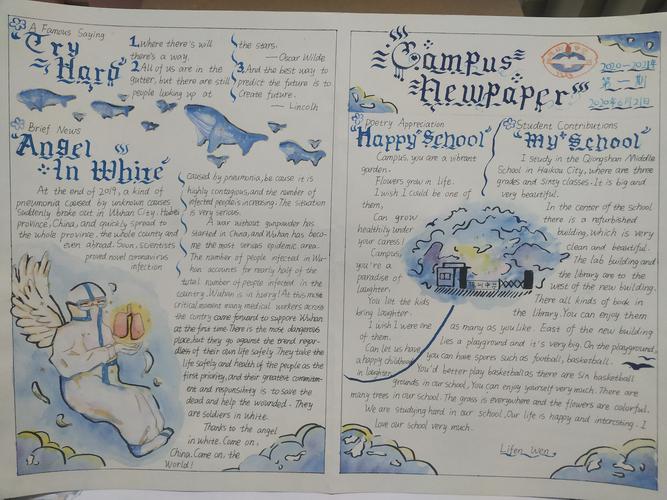 A Famous Saying
"Try
Hard"
1. Where there's will
there's a way.
2. All of us are in the
gutter, but there are still
people looking up at
the stars.
— Oscar Wilde
3. And the best way to
predict the future is to
Create future.
— Lincoln
Brief News
"Angel
In White"
At the end of 2019, a kind of
pneumonia caused by unknown causes
suddenly broke out in Wuhan City, Hubei
province, China, and quickly spread to
the whole province, the whole country and
even abroad. Soon, scientists
proved novel coronavirus
infection
caused by pneumonia, be cause it is
highly contagious, and the number of
infected people is increasing. The situation
is very serious.
A war without gunpowder has
started in China, and Wuhan has beco-
me the most serious epidemic area.
The number of people infected in Wu-
han accounts for nearly half of the
total number of people infected in the
country. Wuhan is in hurry! At this most
critical moment many medical workers across
the contry came forward to support Wuhan
at the first time. There is the most dangerous
place, but they go against the trend regar-
dless of their own life safely. They take the
life safely and health of the people as the
first priority, and their greatest commitm-
ent and responsibility is to save the
dead and help the wounded. They
are soldiers in white.
Thanks to the angel
in white. Come on,
China. Come on, the
World!
"Campus
Newpaper"
2020-2021年
第一期
2020年6月21日
Poetry Appreciation
"Happy School"
Campus, you are a vibrant
garden.
Flowers grow in life.
I wish I could be one of
them,
Can grow
healthily under
your caress!
Campus,
you're a
paradise of
laughter.
You let the kids
bring laughter.
I wish I were one
of them.
Can let us have
a happy childhood
in laughter.
Student Contributions
"My School"
I study in the Qiongshan Middle
School in Haikou City, where are three
grades and sixty classes. It is big and
very beautiful.
In the center of the school
there is a refurbished
building, which is very
clean and beautiful.
The lab building and
the library are to the
west of the new building.
There all kinds of book in
the library. You can enjoy them
as many as you like. East of the new building
lies a playground and it's very big. On the playground,
you can have spores such as football, basketball.
You'd better play basketball as there are six basketball
grounds in our school. You can enjoy yourself very much. There are
many trees in our school. The grass is everywhere and the flowers are colorful.
We are studying hard in our school. Our life is happy and interesting. I
love our school very much.
Lifen Wen